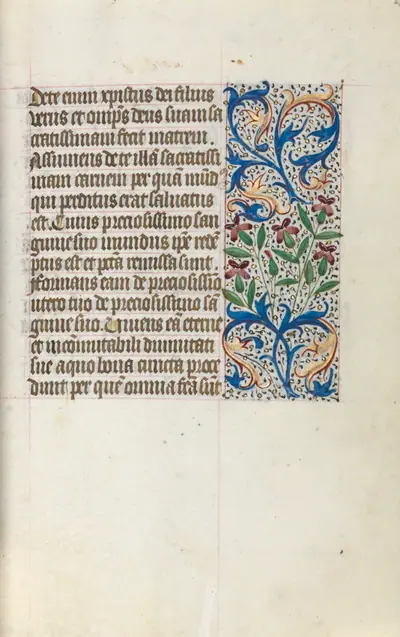 De te enim xpistus dei filius
verus et omp̅s deus suam sa
cratissimam fecit matrem.
Assumens de te illā sacratissi
mam carnem per quā mūd
qui perditus erat saluatus
est. Cuius preciosissimo san
guine suo mundus ip̅e redē
ptus est et pctā remissa sunt.
Formans eam de preciosissīo
utero tuo de preciosissimo sā
guine suo. Et uniens eā eterne
et incōmutabili diuinitati
sue a quo bona cuncta proce
dunt per quē omnia fcā sūt